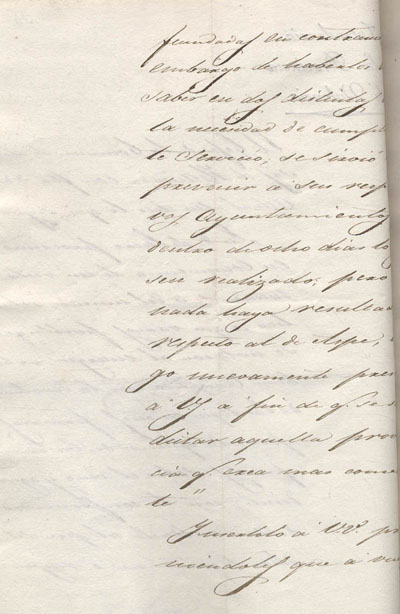 fundadas en contrario
embargo de haberles
saber en dos distintas
la necesidad de cumpl
te servicio, se sirvió
prevenir a sus resp
vos Ayuntamientos
dentro de ocho dias lo
sen realizado; pero
nada haya resultad
respecto al de Aspe,
go nuevamente pres
á VS á fin de q. se s
dictar aquella prov
cia q. crea mas conve
te"
Insertolo á VV. pr
niendoles que á vu